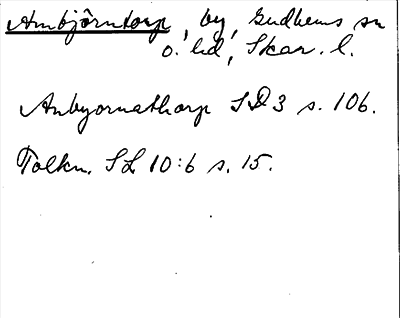 Arnbjörntorp, by, Gudhems sn
o. hd, Skar. l.
Anbyornathorp SD 3 s. 106.
Tolkn. SL 10:6 s. 15.